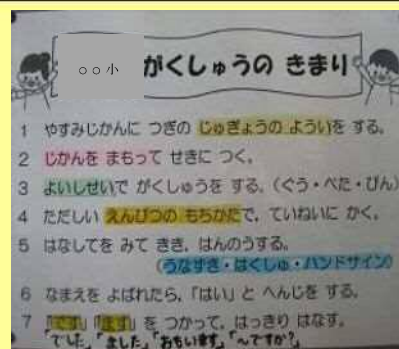 ○○小 がくしゅうの きまり
1 やすみじかんに つぎの じゅぎょうの よういを する。
2 じかんを まもって せきに つく。
3 よいしせいで がくしゅうを する。(ぐう・ぺた・ぴん)
4 ただしい えんぴつの もちかたで、ていねいに かく。
5 はなしてを みて きき、はんのうする。
(うなずき・はくしゅ・ハンドサイン)
6 なまえを よばれたら、「はい」と へんじを する。
7 「です」「ます」を つかって、はっきり はなす。
「でした」「ました」「おもいます」「~ですか?」